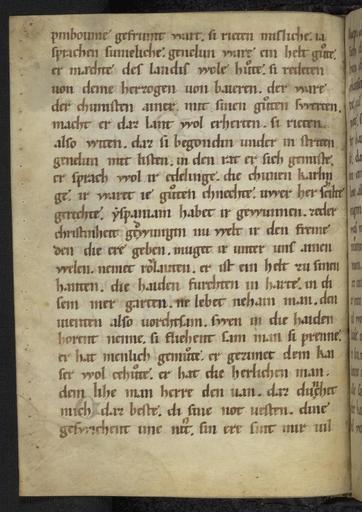 pinboume gefrumt wart. si rieten misliche. ia
sprachen sumeliche. genelun ware ein helt gůte.
er machte des landis wole hůte. si redeten
uon deme herzogen uon baieren. der ware
der chunisten ainer. mit sinen gůten swerten.
macht er daz lant wol erherten. si rieten
also witen. daz si begondin under in striten
gendun mit listen. in den rat er sich gemiste.
er sprach wol ir edelinge. die chunen karlin
ge. ir waret ie gůten chnechte. uwer her scilte
gerechte. yspaniam habet ir gewunnen. zeder
christinheit gedwungen nu welt ir den frome
den die ere geben. muget ir unter uns ainen
welen. nemet růlanten. er ist ein helt zu sinen
hanten. die haiden furchten in harte. in di
sem mer garten. ne lebet nehain man. den
si
horent nennen. si fliehent sam man si prenne.
er hat menlich gemůte. er gezimet dem kai
ser wol cehůte. er hat die herlichen man.
dem lihe man herre den uan. daz duchet
mich daz beste. di sine not uesten. dine
geswichent ime nit. sin ere sint mir uil